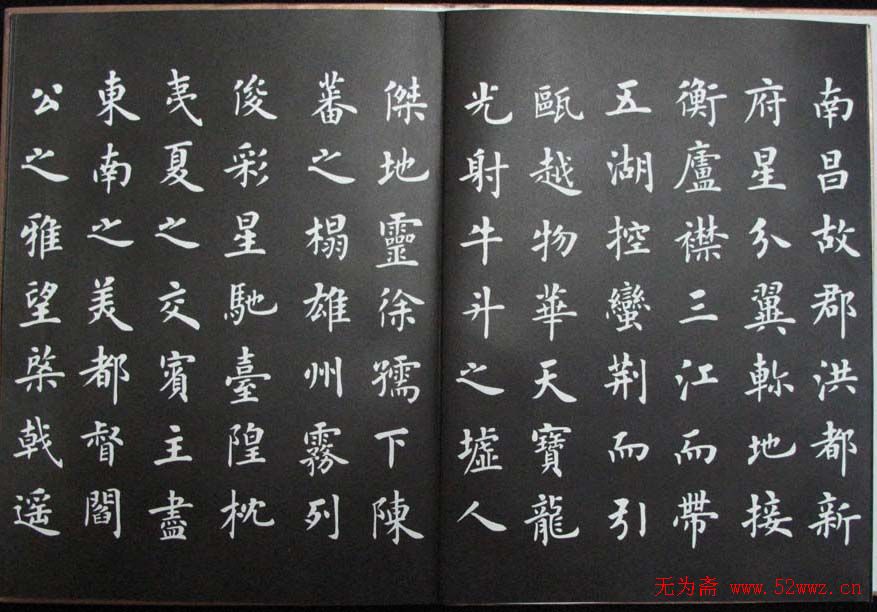 南昌故郡洪都新
府星分翼軫地接
衡廬襟三江而帶
五湖控蠻荆而引
甌越物華天寶龍
光射牛斗之墟人
傑地靈徐孺下陳
蕃之榻雄州霧列
俊彩星馳臺隍枕
夷夏之交賓主盡
東南之美都督閻
公之雅望棨戟遥
无为斋 www.52wwz.cn